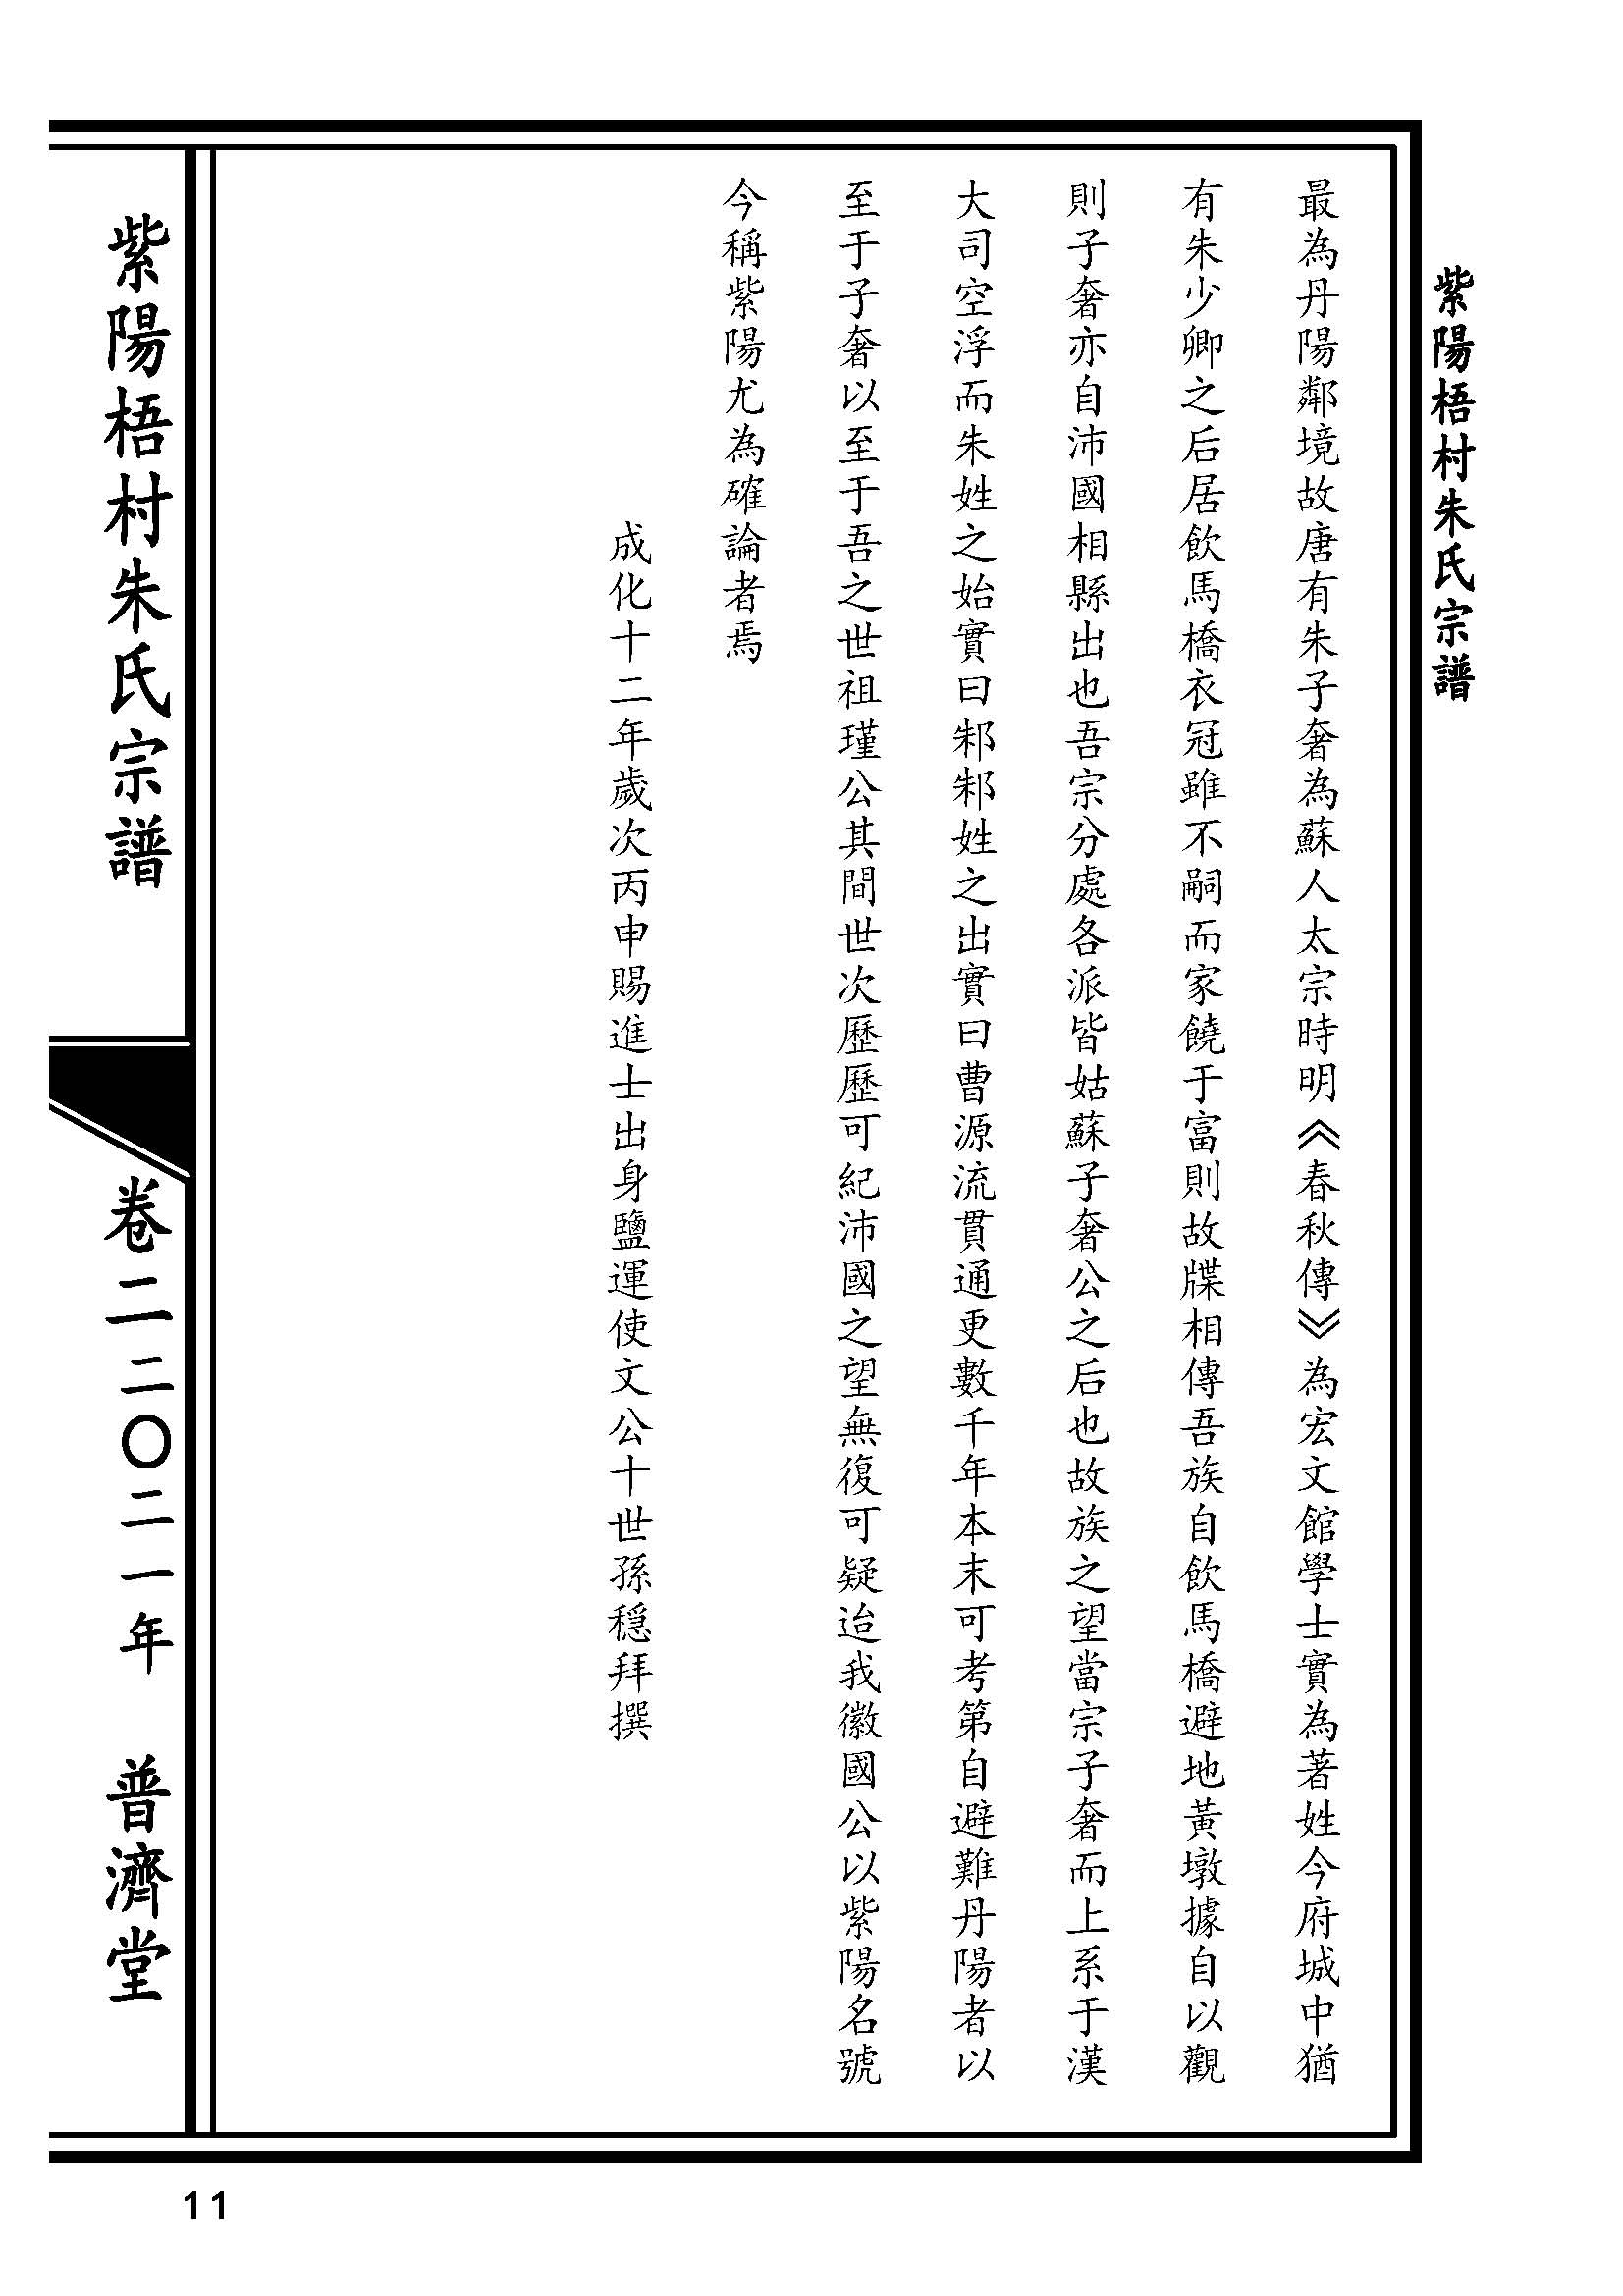 紫陽梧村朱氏宗譜
最為丹陽鄰境故唐有朱子奢為蘇人太宗時明《春秋傳》為宏文館學士實為著姓今府城中猶
有朱少卿之后居飲馬橋衣冠雖不嗣而家饒于富則故牒相傳吾族自飲馬橋避地黃墩據自以觀
則子奢亦自沛國相縣出也吾宗分處各派皆姑蘇子奢公之后也故族之望當宗子奢而上系于漢
大司空浮而朱姓之始實曰邾邾姓之出實曰曹源流貫通更數千年本末可考第自避難丹陽者以
至于子奢以至于吾之世祖瑾公其間世次歷歷可紀沛國之望無復可疑迨我徽國公以紫陽名號
今稱紫陽尤為確論者焉
成化十二年歲次丙申賜進士出身鹽運使文公十世孫穩拜撰
紫陽梧村朱氏宗譜
卷二
二〇二一年
普濟堂
11